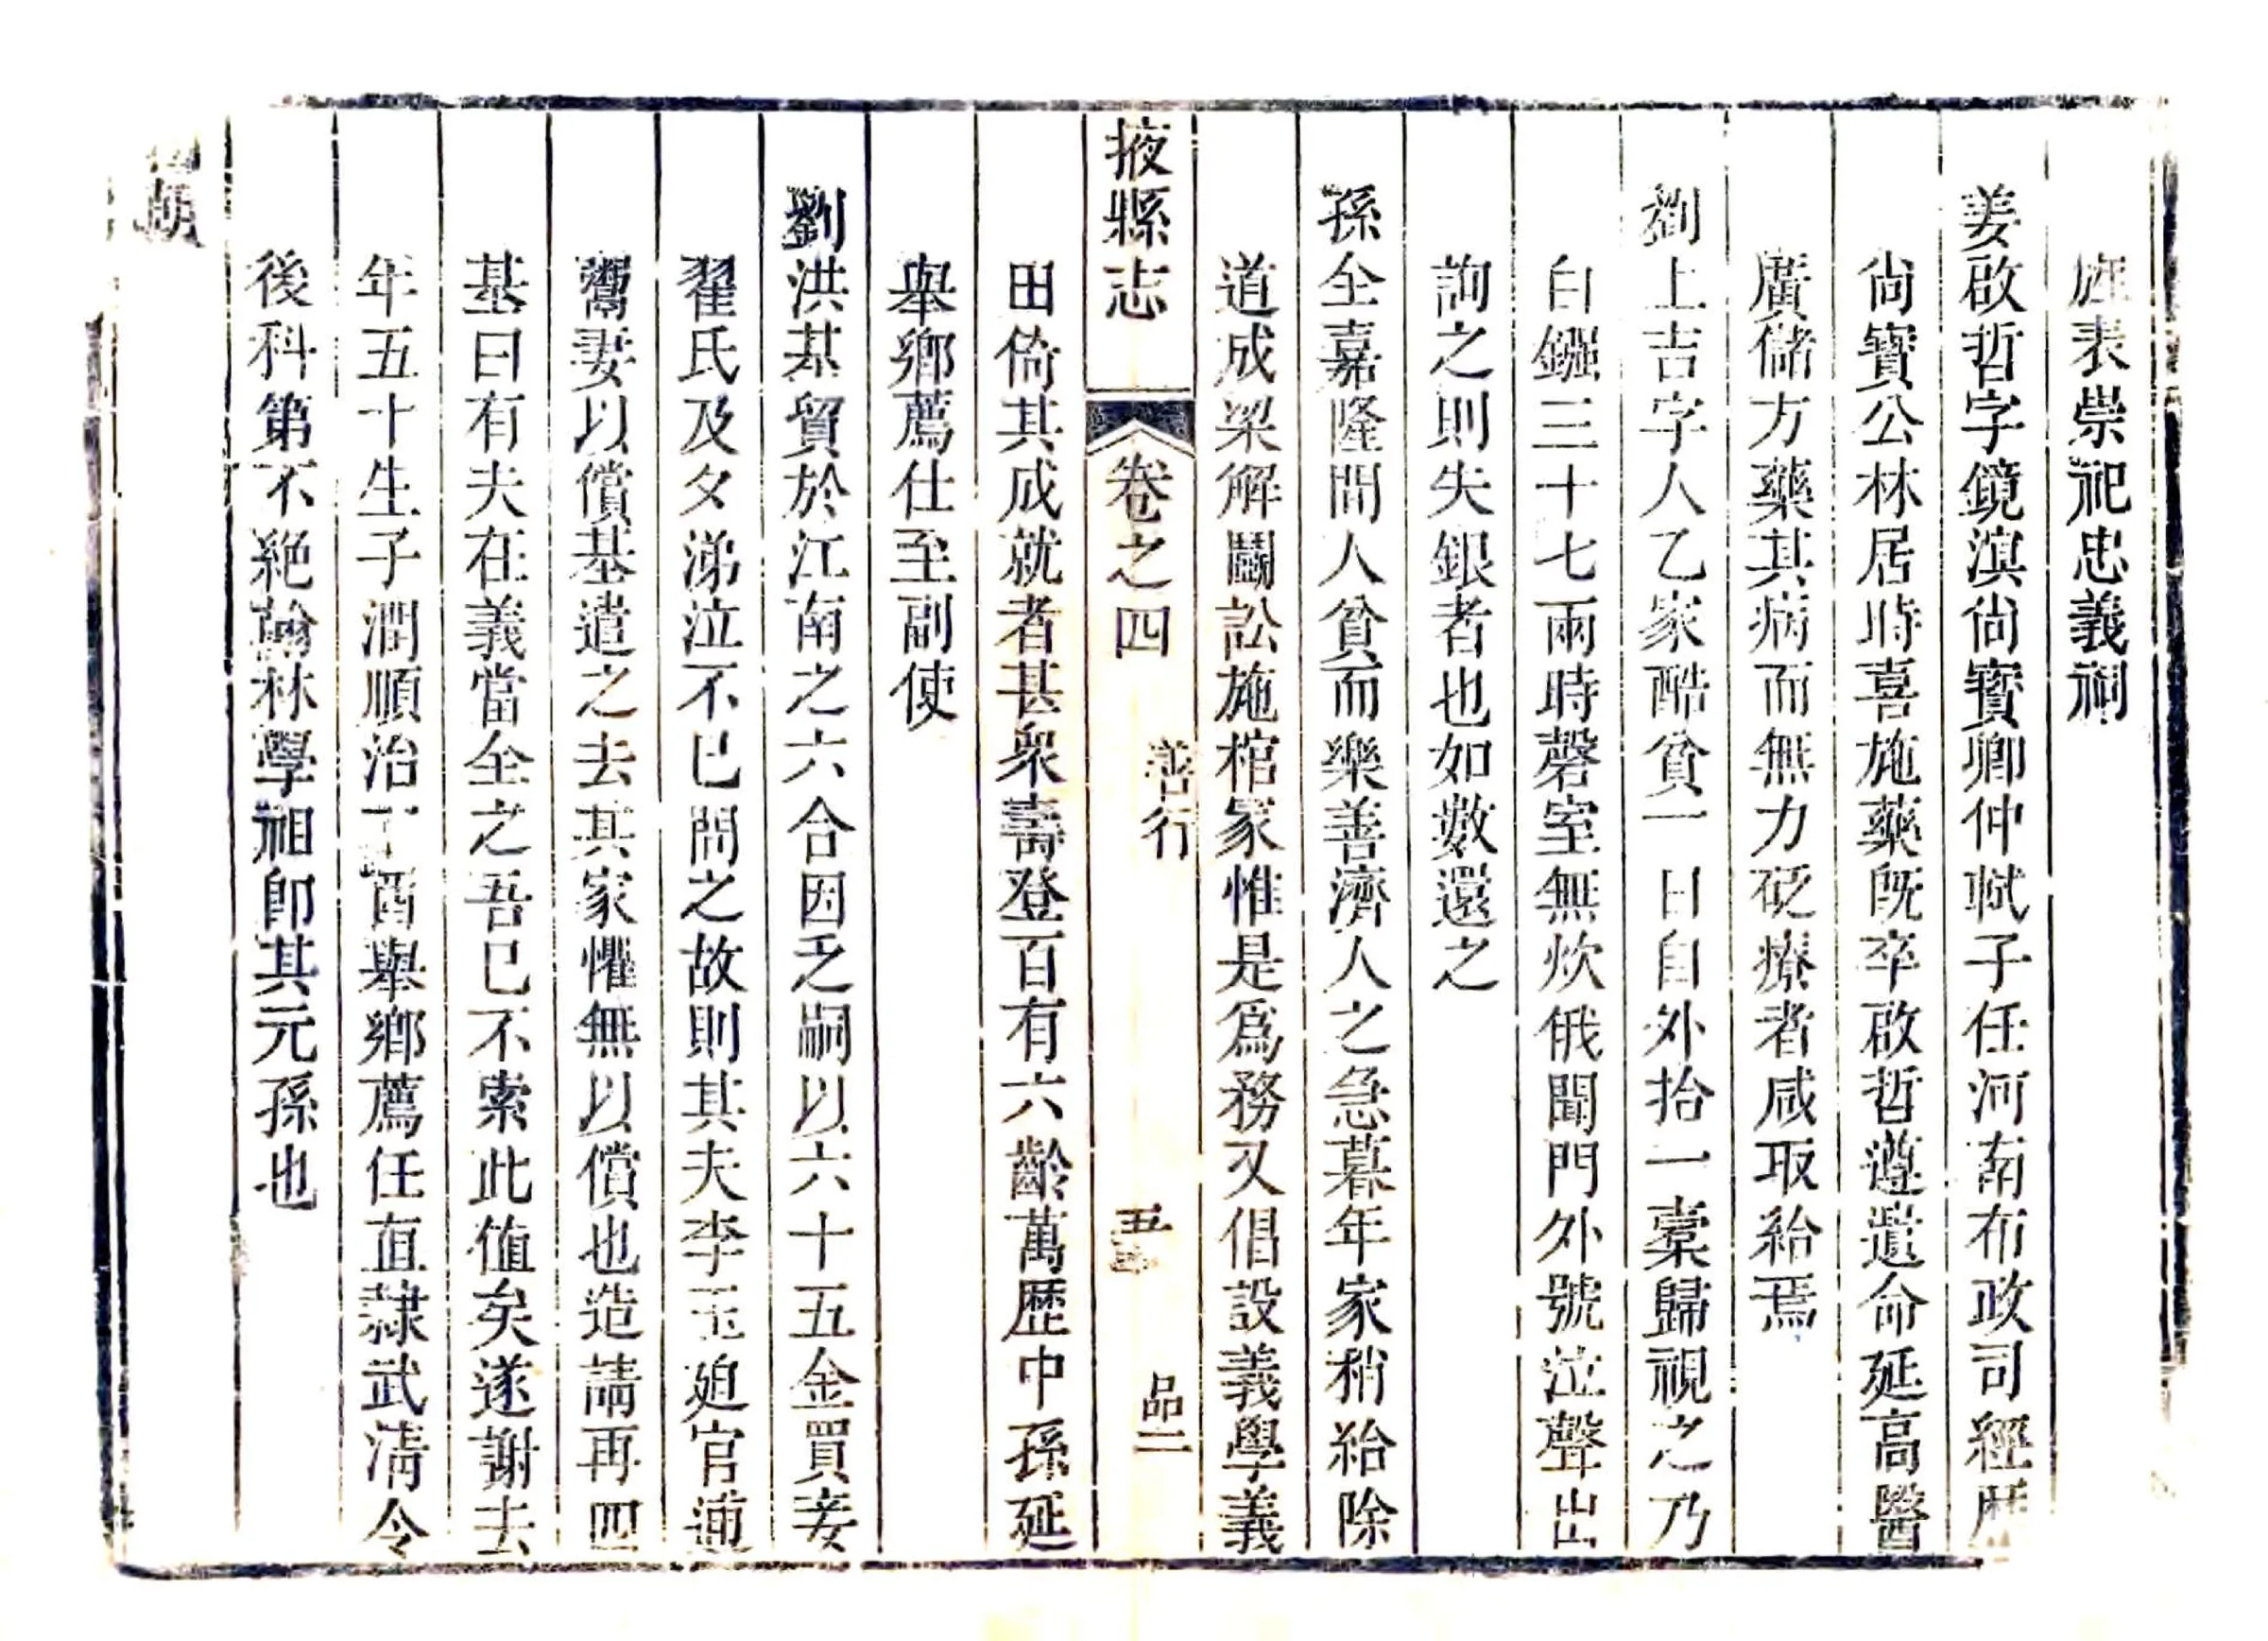 旌表崇祀忠義祠
姜啟哲字鏡滇尙寶卿仲軾子任河南布政司經歷
尙寶公林居時喜施藥旣卒啟哲遵遺命延高醫
廣儲方藥其病而無力砭療者咸取給焉
劉上吉字人乙家酷貧一日自外拾一橐歸視之乃
白鏹三十七兩時磬室無炊俄聞門外號泣聲出
詢之則失銀者也如數還之
孫全嘉隆間人貧而樂善濟人之急暮年家稍給除
道成梁解鬬訟施棺冢惟是爲務又倡設義學義
掖縣志 卷之四 善行 五 品二
田倚其成就者甚衆壽登百有六齡萬歷中孫延
舉鄉薦仕至副使
劉洪基貿於江南之六合因乏嗣以六十五金買妾
翟氏及夕涕泣不已問之故則其夫李玉廹官逋
鬻妻以償基遣之去其家懼無以償也造請再四
基曰有夫在義當全之吾已不索此値矣遂謝去
年五十生子潤順治丁酉舉鄉薦任直隷武清令
後科第不絕翰林學祖卽其元孫也